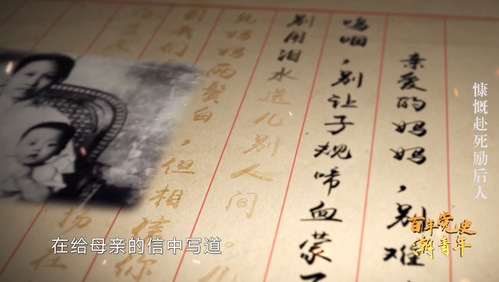 亲爱的妈妈，别难
呜咽，别让子规啼血蒙了
别用泪水送儿别人间。儿
见妈妈两鬓白，但相信你
我们
在
慷慨赴死励后人
百年党史
青年
在给母亲的信中写道